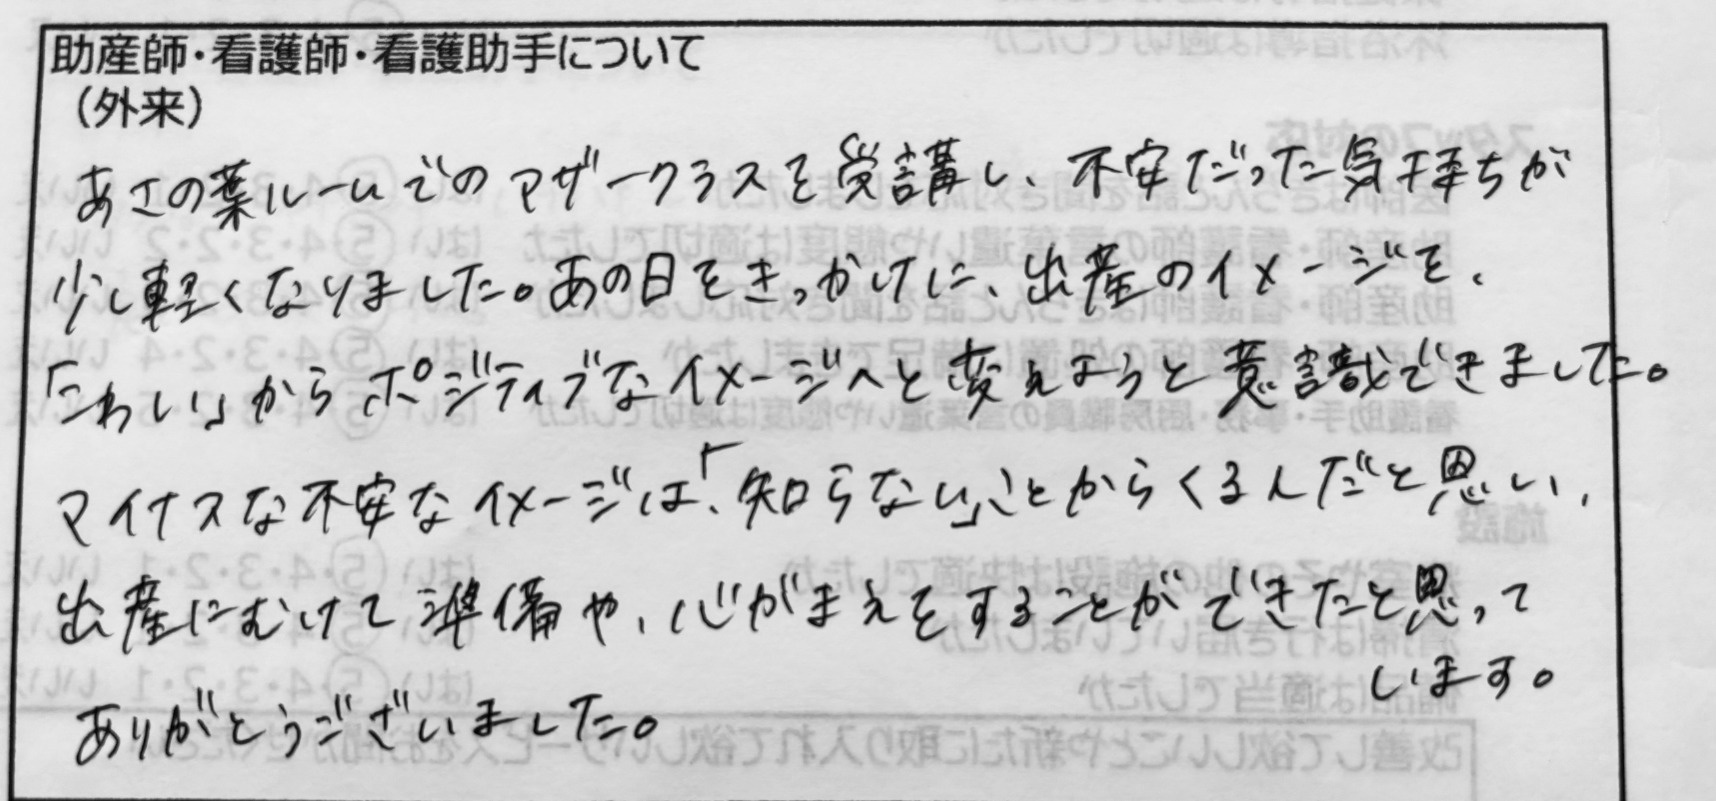 助産師・看護師・看護助手について
（外来）
あさの葉ルームでのマザークラスを受講し、不安だった気持ちが
少し軽くなりました。あの日をきっかけに、出産のイメージを、
「こわい」からポジティブなイメージへと変えようと意識できました。
マイナスな不安なイメージは、「知らない」ことからくるんだと思い、
出産にむけて準備や、心がまえをすることができたと思って
います。
ありがとうございました。